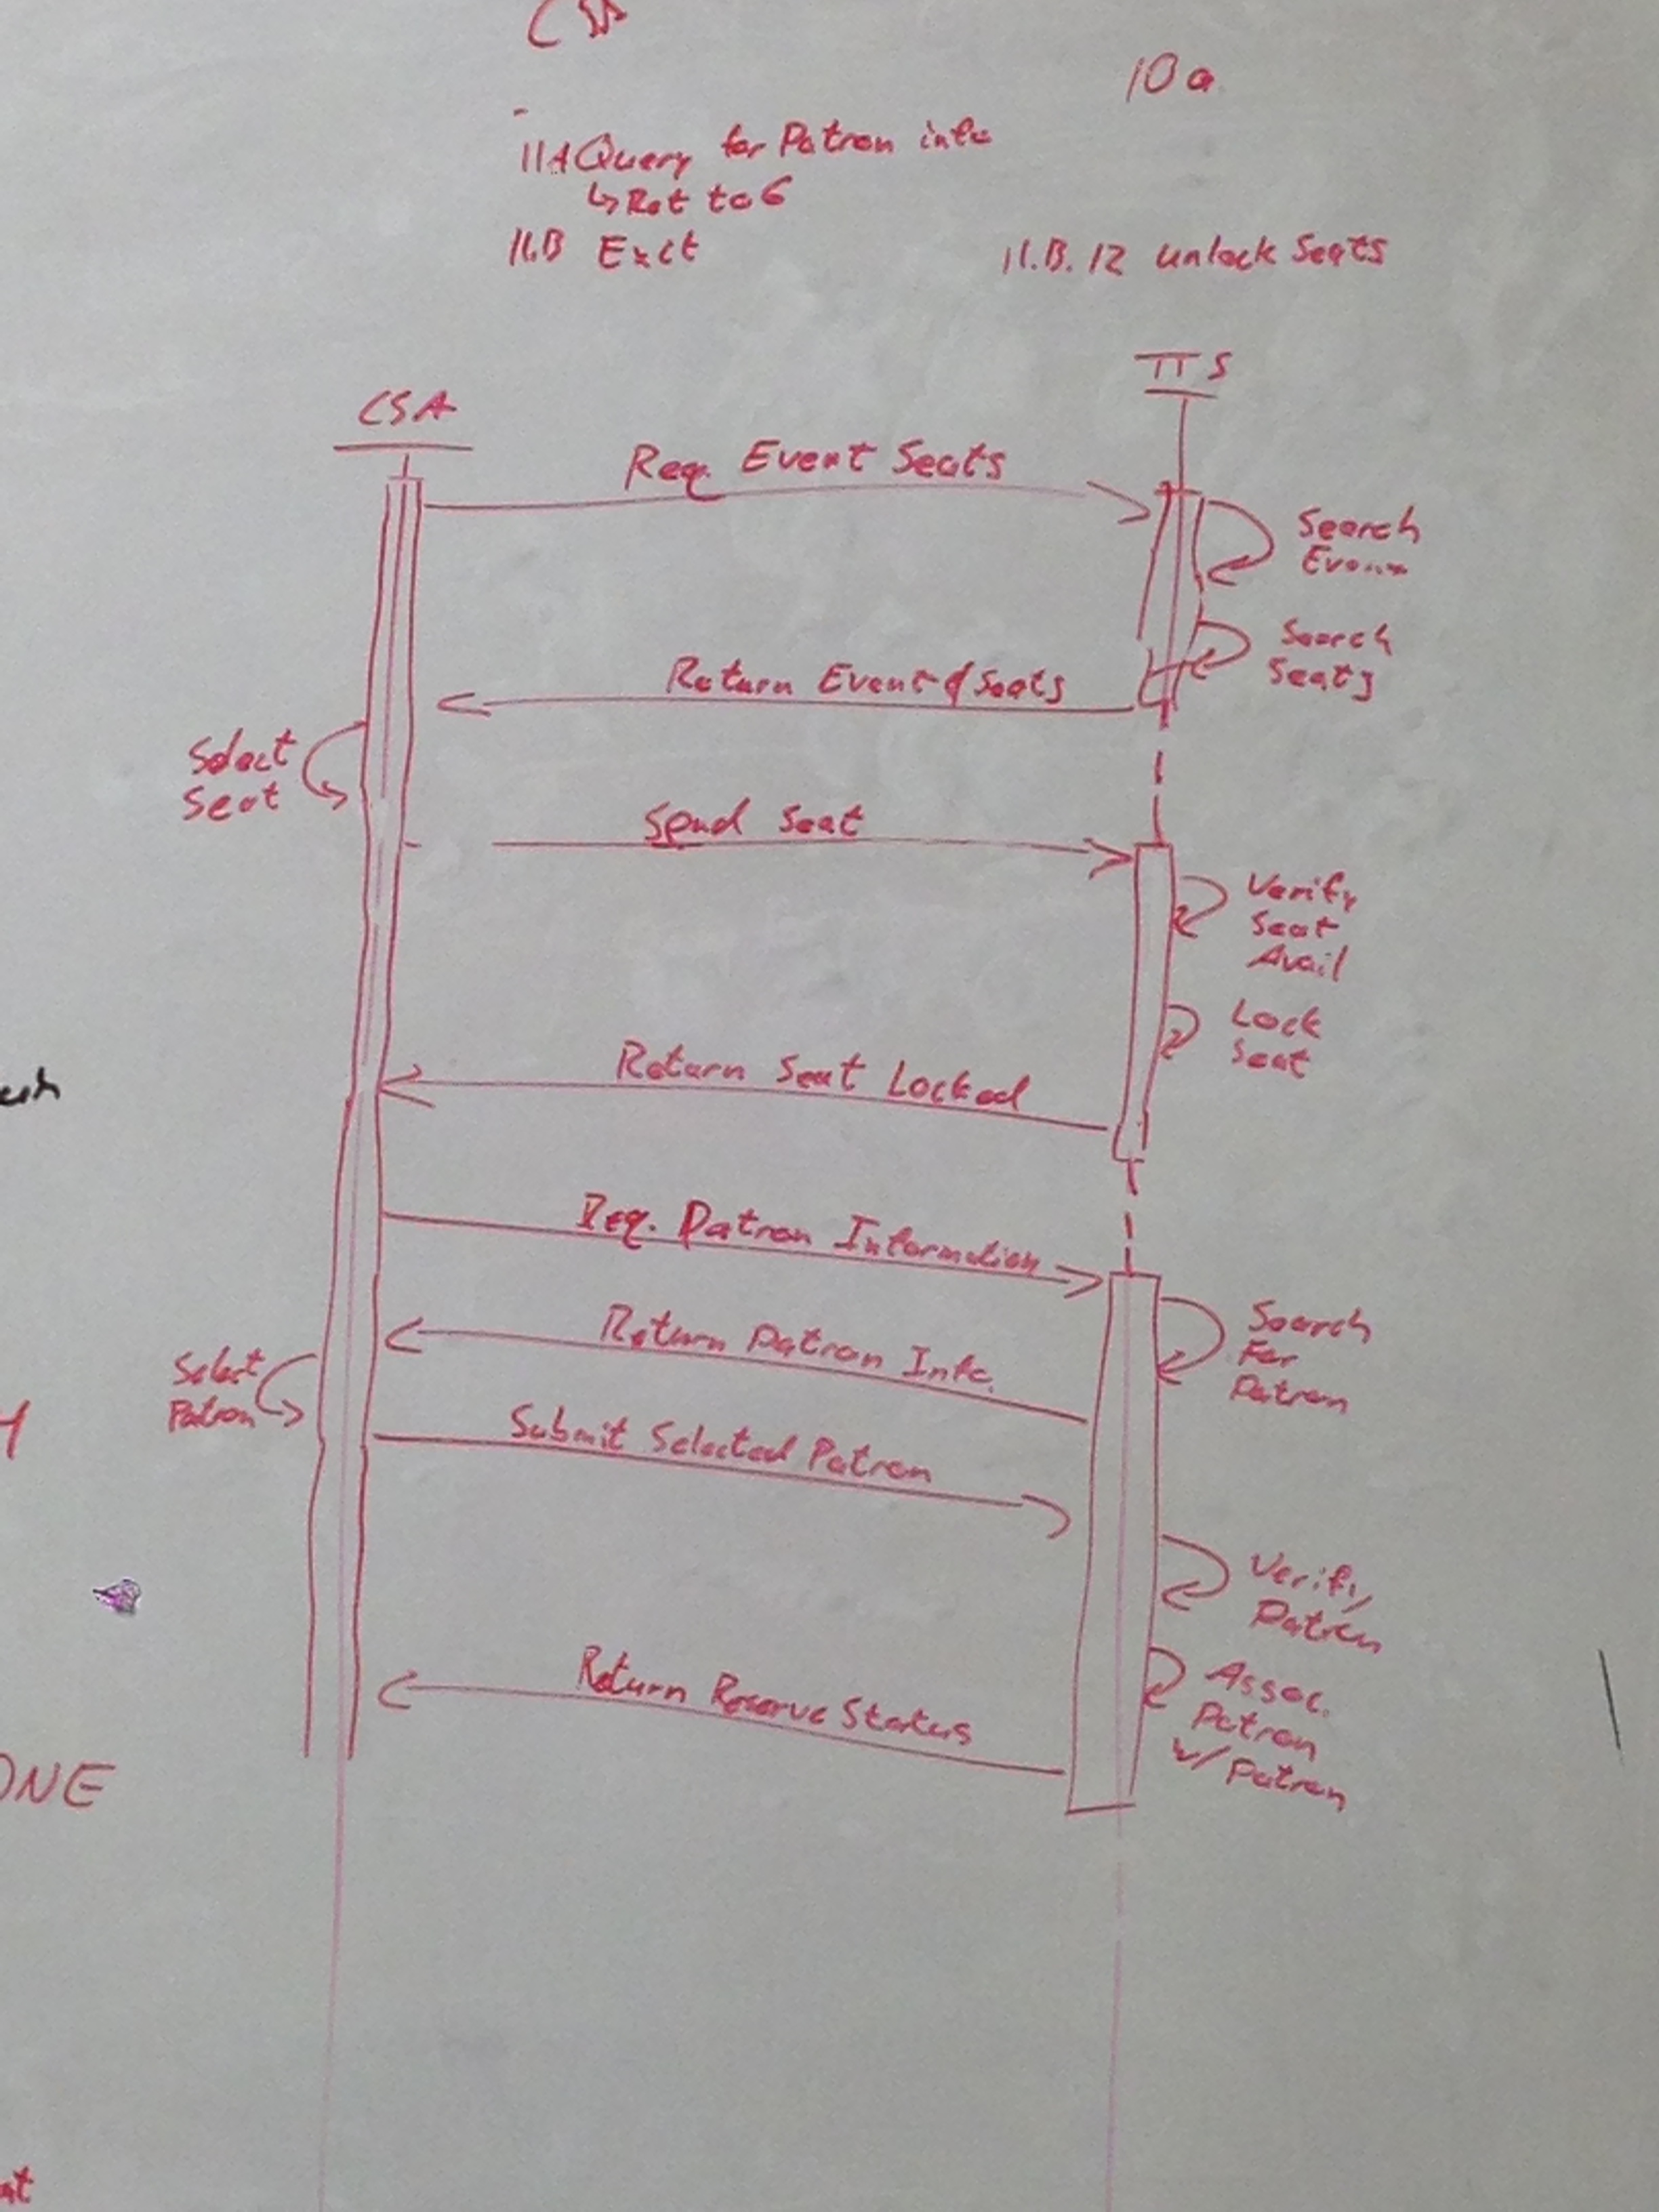 10a
11A Query for Patron info
↳ Ret to 6
11.B Exit
11.B.12 unlock Seats
CSA
TTS
Req. Event Seats
Search
Search
Seats
Return Event & Seats
Select
Seat
Send Seat
Verify
Seat
Avail
Lock
Seat
Return Seat Locked
Req. Patron Information
Search
For
Patron
Return Patron Info.
Select
Patron
Submit Selected Patron
Verify
Patron
Assoc.
Patron
w/ Patron
Return Reserve Status
ONE